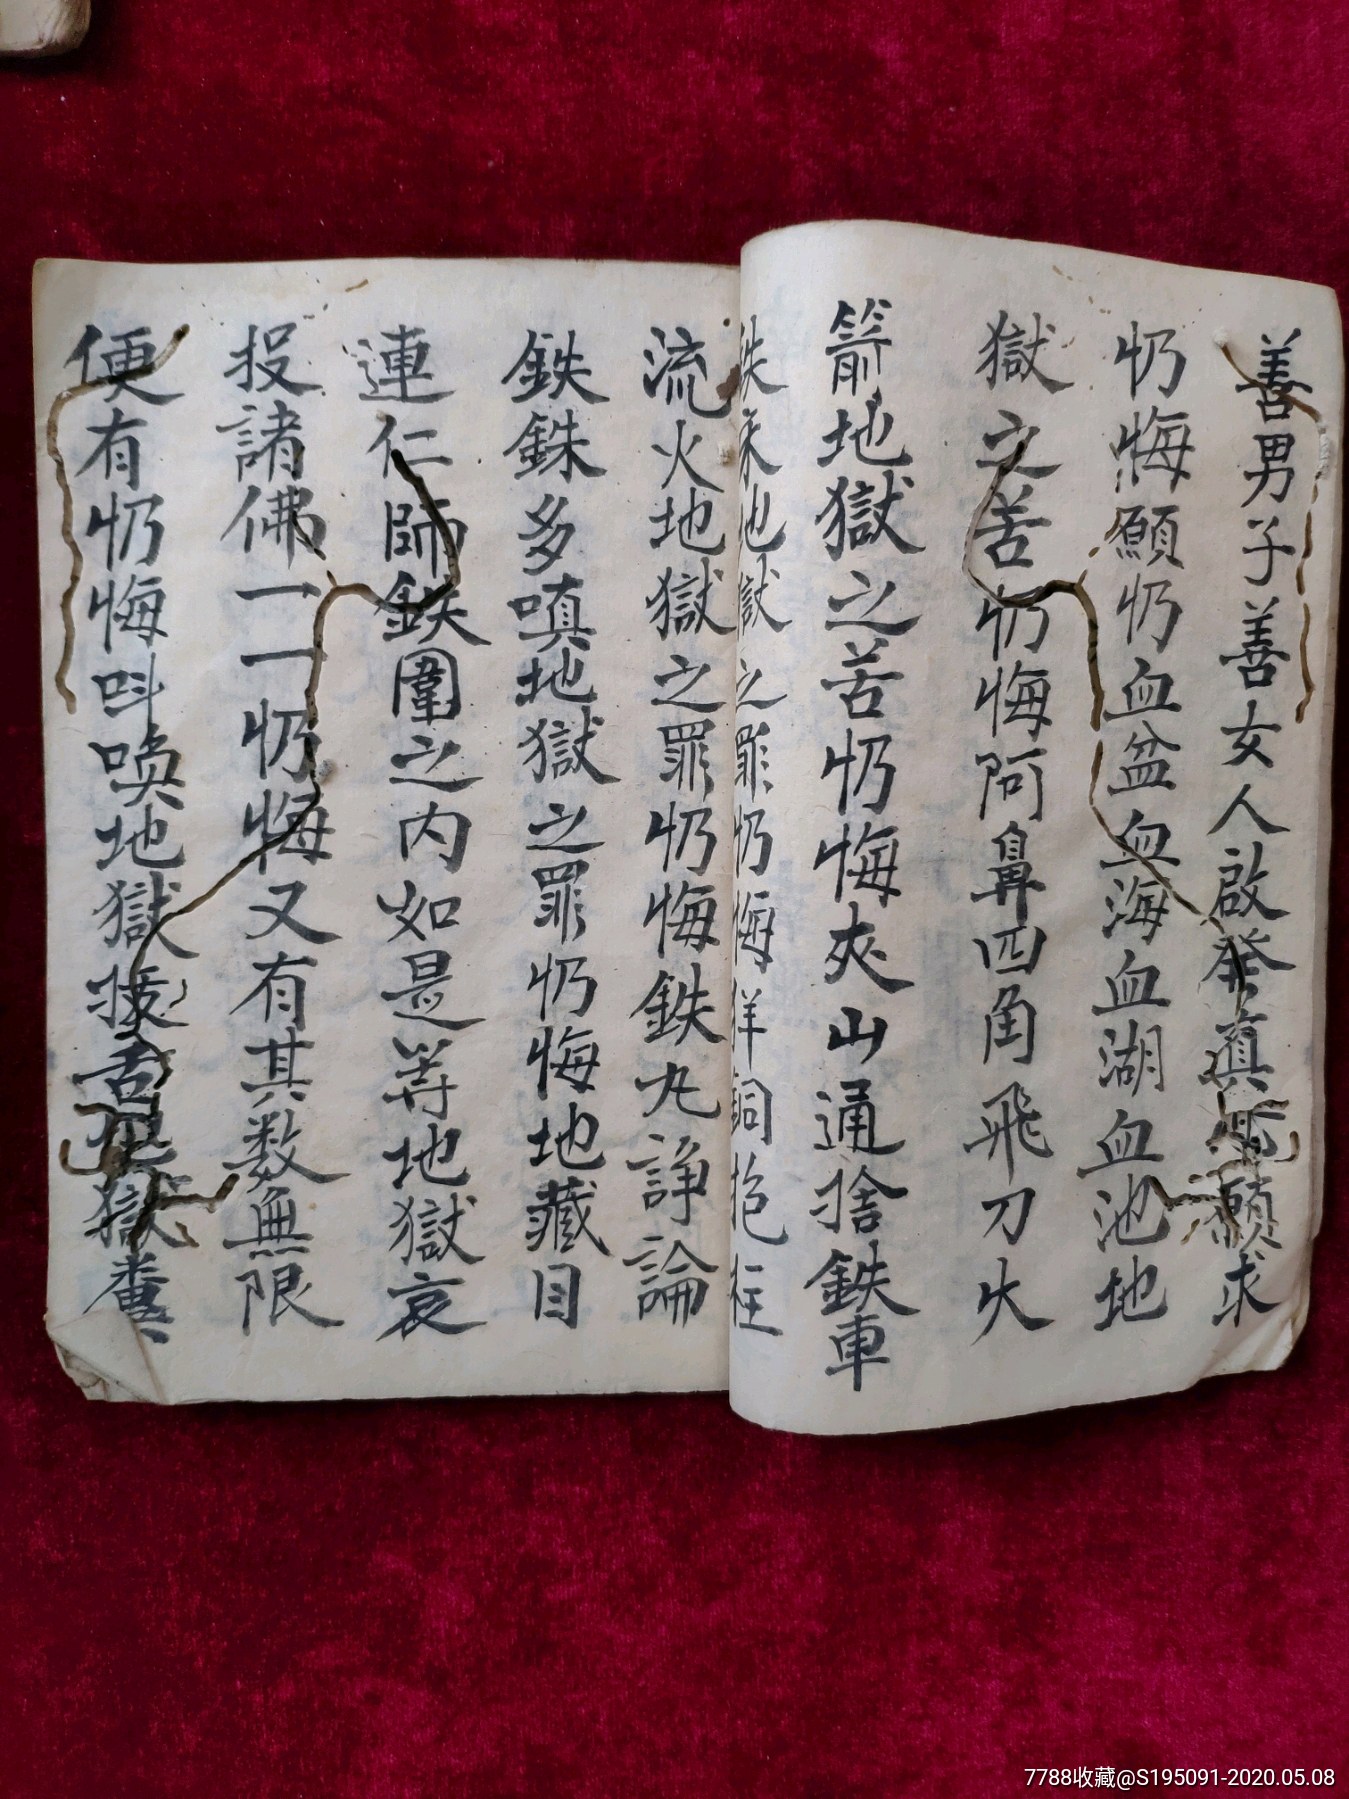 善男子善女人啟發真心願求
忉悔願忉血盆血海血湖血池地
獄之苦忉悔阿鼻四角飛刀火
箭地獄之苦忉悔夾山通捨鉄車
鉄床地獄之罪忉悔洋銅抱柱
流火地獄之罪忉悔鉄丸諍論
鉄銖多嗔地獄之罪忉悔地藏目
連仁師鉄圍之内如是等地獄哀
投諸佛一一忉悔又有其数無限
便有忉悔呌喚地獄拔舌地獄糞
7788收藏@S195091-2020.05.08